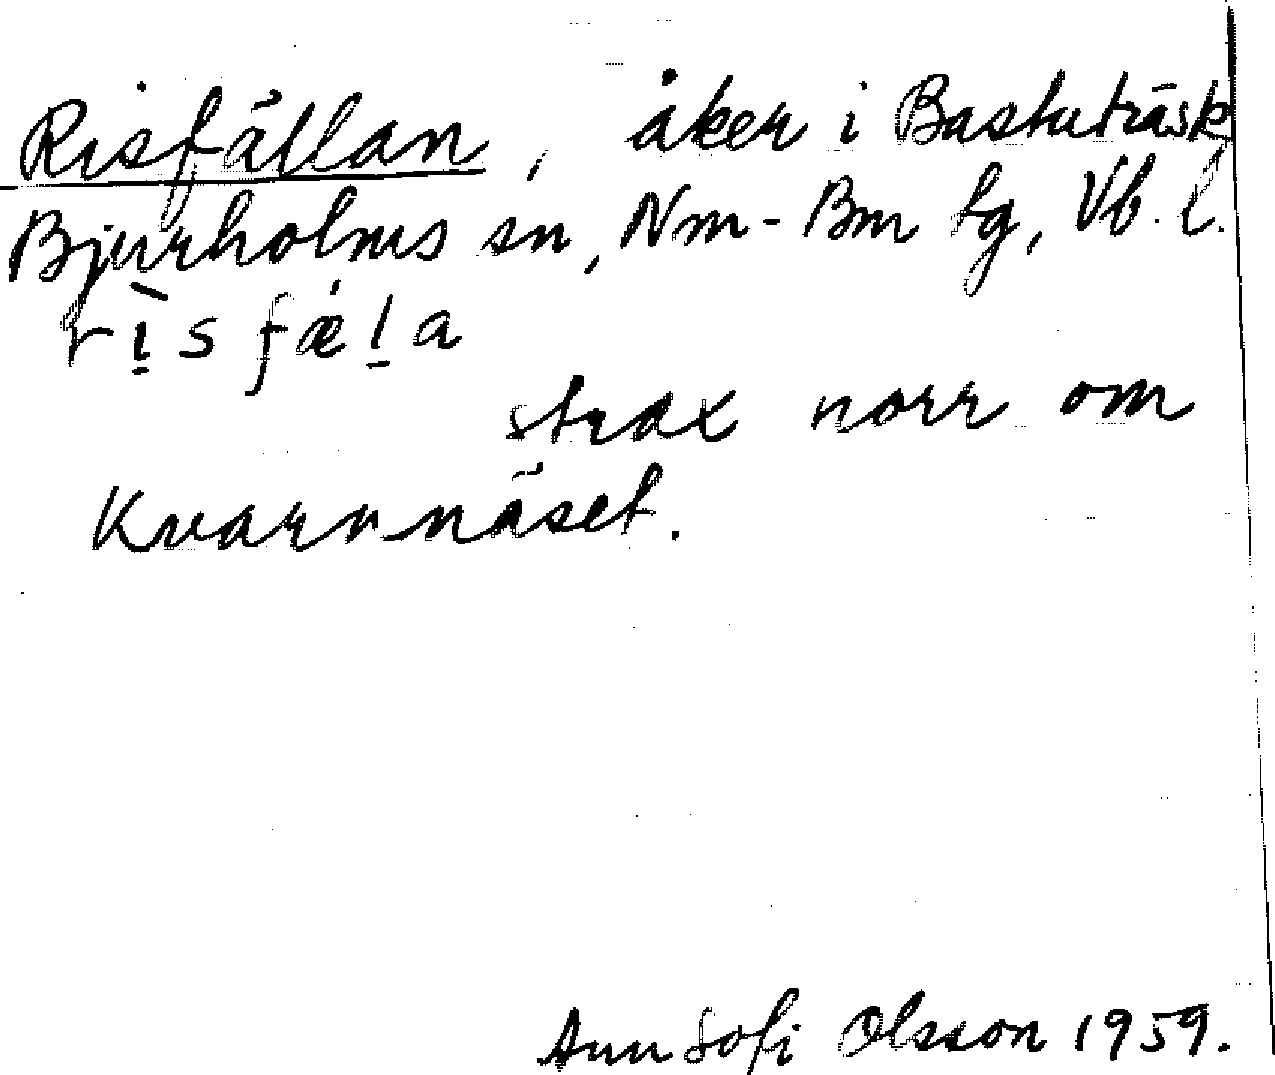 Risfällan, åker i Bastuträsk,
Bjurholms sn, Nm-Bm tg, Vb. l.
rı̱̀sfǽḻa
strax norr om
Kvarnnäset.
Ann Sofi Olsson 1959.